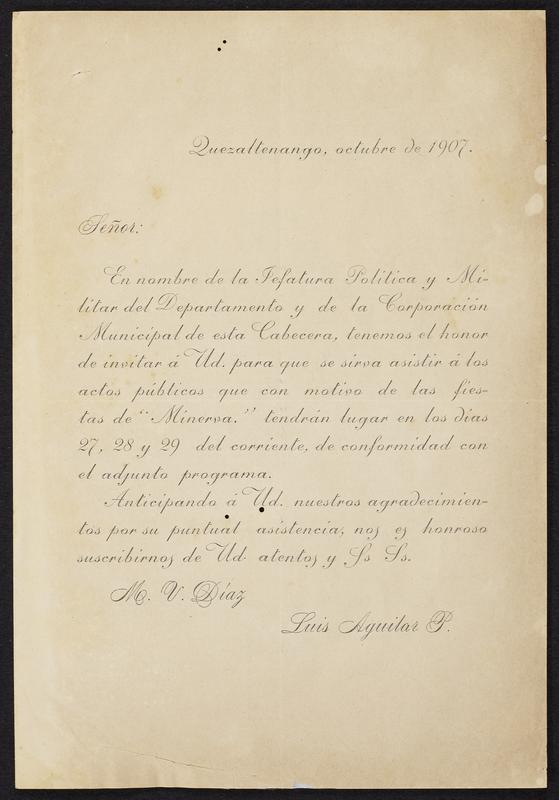 Quezaltenango, octubre de 1907.
Señor:
En nombre de la Jefatura Política y Mi-
litar del Departamento y de la Corporación
Municipal de esta Cabecera, tenemos el honor
de invitar á Ud. para que se sirva asistir á los
actos públicos que con motivo de las fies-
tas de "Minerva." tendrán lugar en los días
27, 28 y 29 del corriente, de conformidad con
el adjunto programa.
Anticipando á Ud. nuestros agradecimien-
tos por su puntual asistencia, nos es honroso
suscribirnos de Ud. atentos y Ss Ss.
M. V. Díaz
Luis Aguilar P.